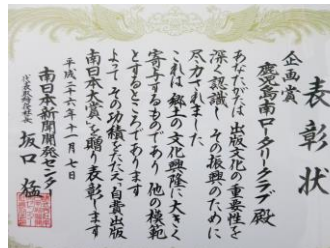 表彰状
企画賞
鹿児島南ロータリークラブ殿
あなたがたは出版文化の重要性を
深く認識し その振興のために
尽力されました
これは郷土の文化興隆に大きく
寄与するものであり 他の模範
とするところであります
よって その功績をたたえ 自費出版
南日本大賞を贈り表彰します
平成二十六年十一月七日
南日本新聞開発センター
代表取締役社長 坂口 猛